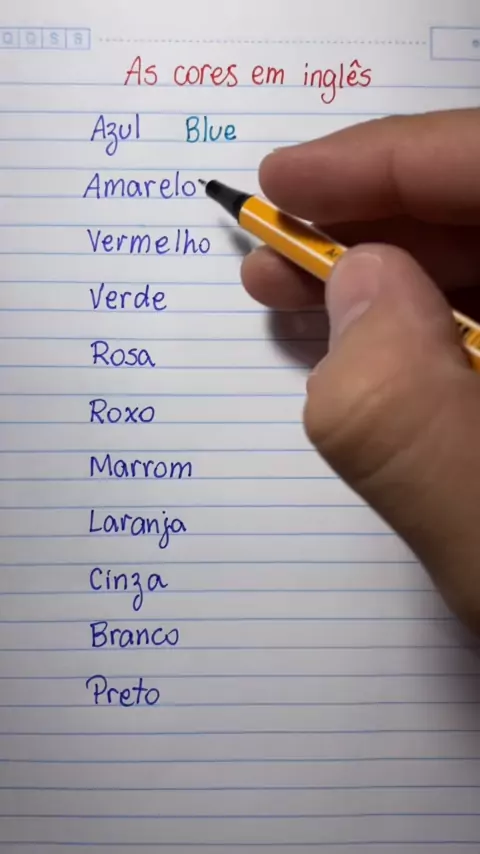 As cores em inglês
Azul Blue
Amarelo
Vermelho
Verde
Rosa
Roxo
Marrom
Laranja
Cinza
Branco
Preto